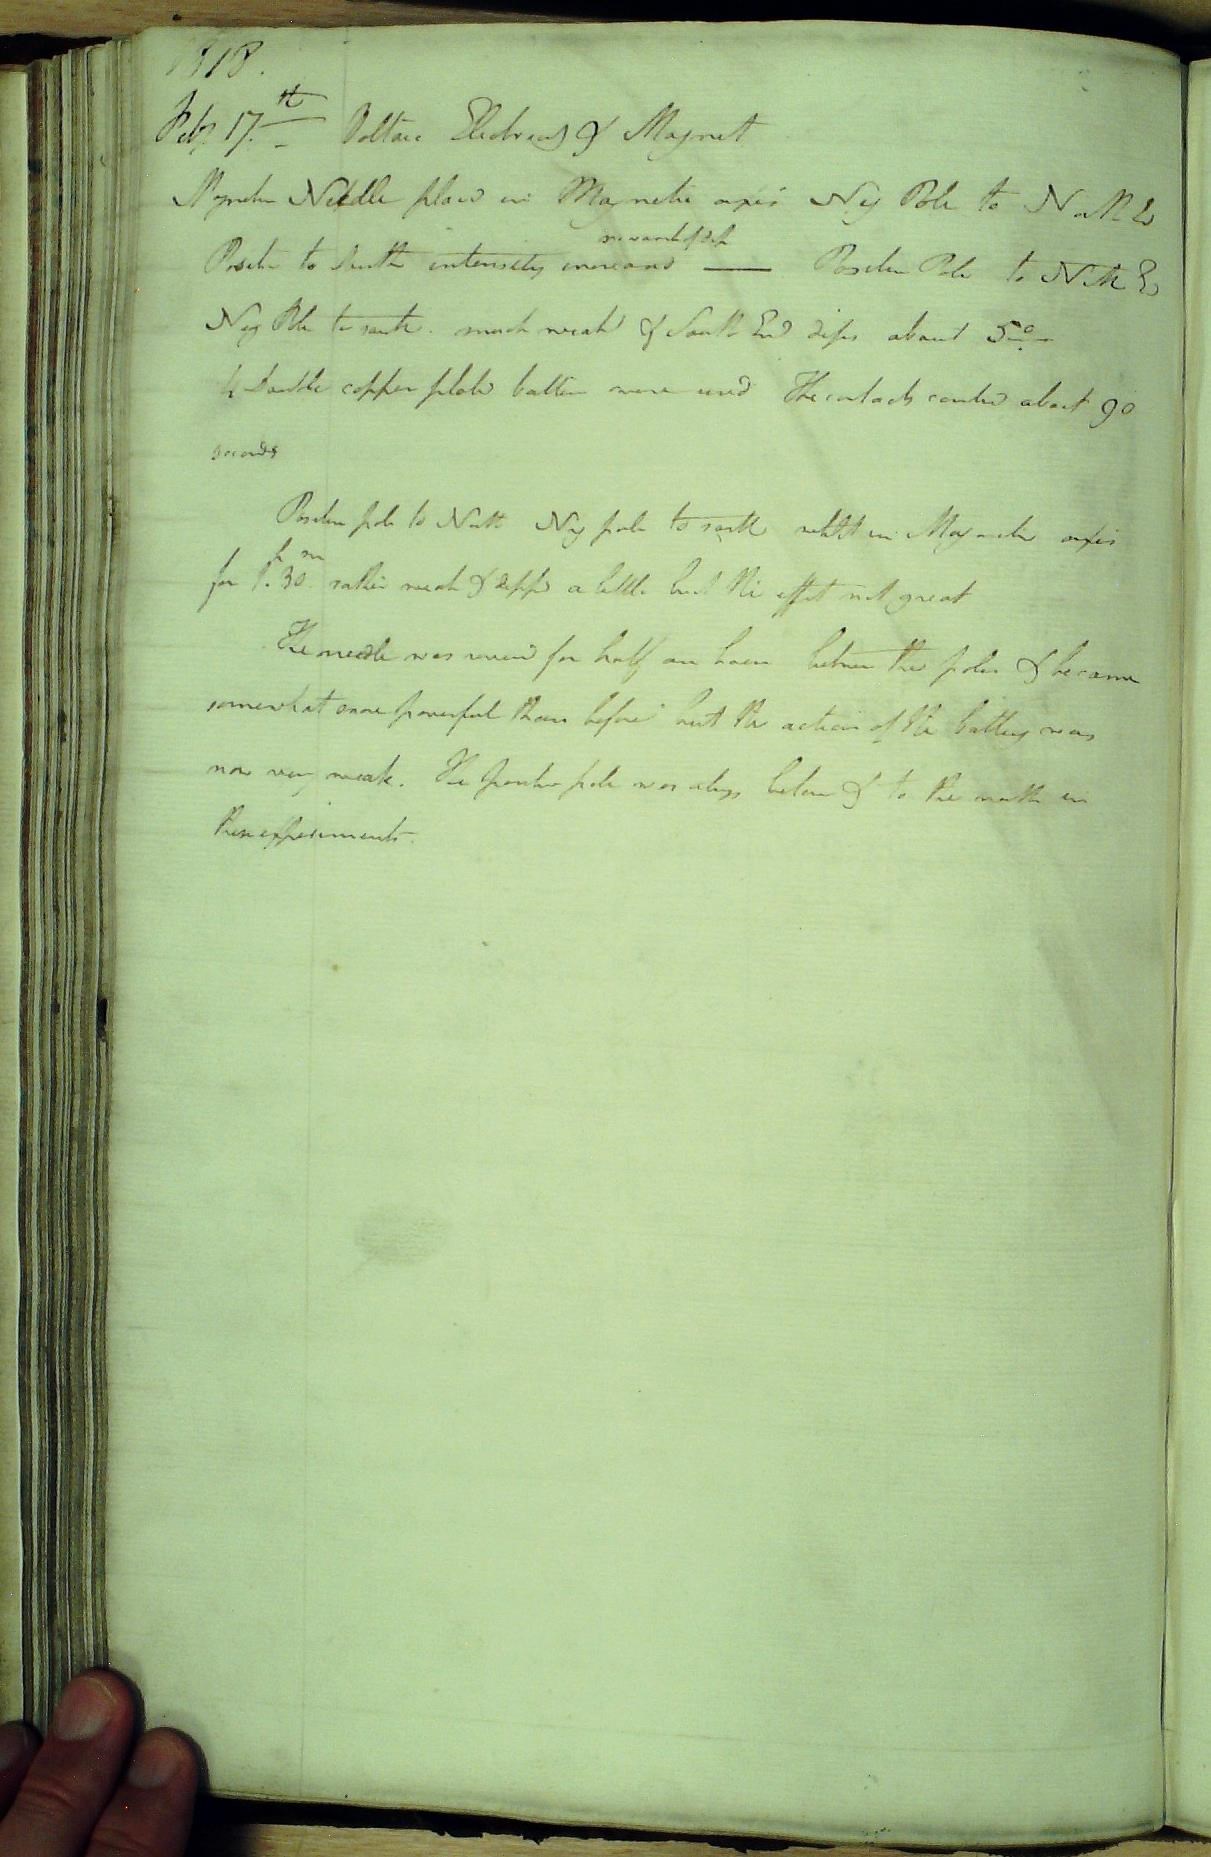 1818.
Feby 17th - Voltaic Electricity & Magnet
Magnetic Needle placed in Magnetic axis Neg Pole to North End
no want of dip
Positive to South intensity increased — Positive Pole to Nth End
Neg Pole to south. much weak & South End dips about 5°
4 double copper plate batteries were used The contacts continued about 90
seconds
Positive pole to North Neg pole to south in Magnetic axis
for 1h. 30m rather weak & dipped a little but the effect not great
The needle was for half an hour between the poles & became
somewhat more powerful than before but the action of the battery was
now very weak. The positive pole was always below & to the north in
these experiments.